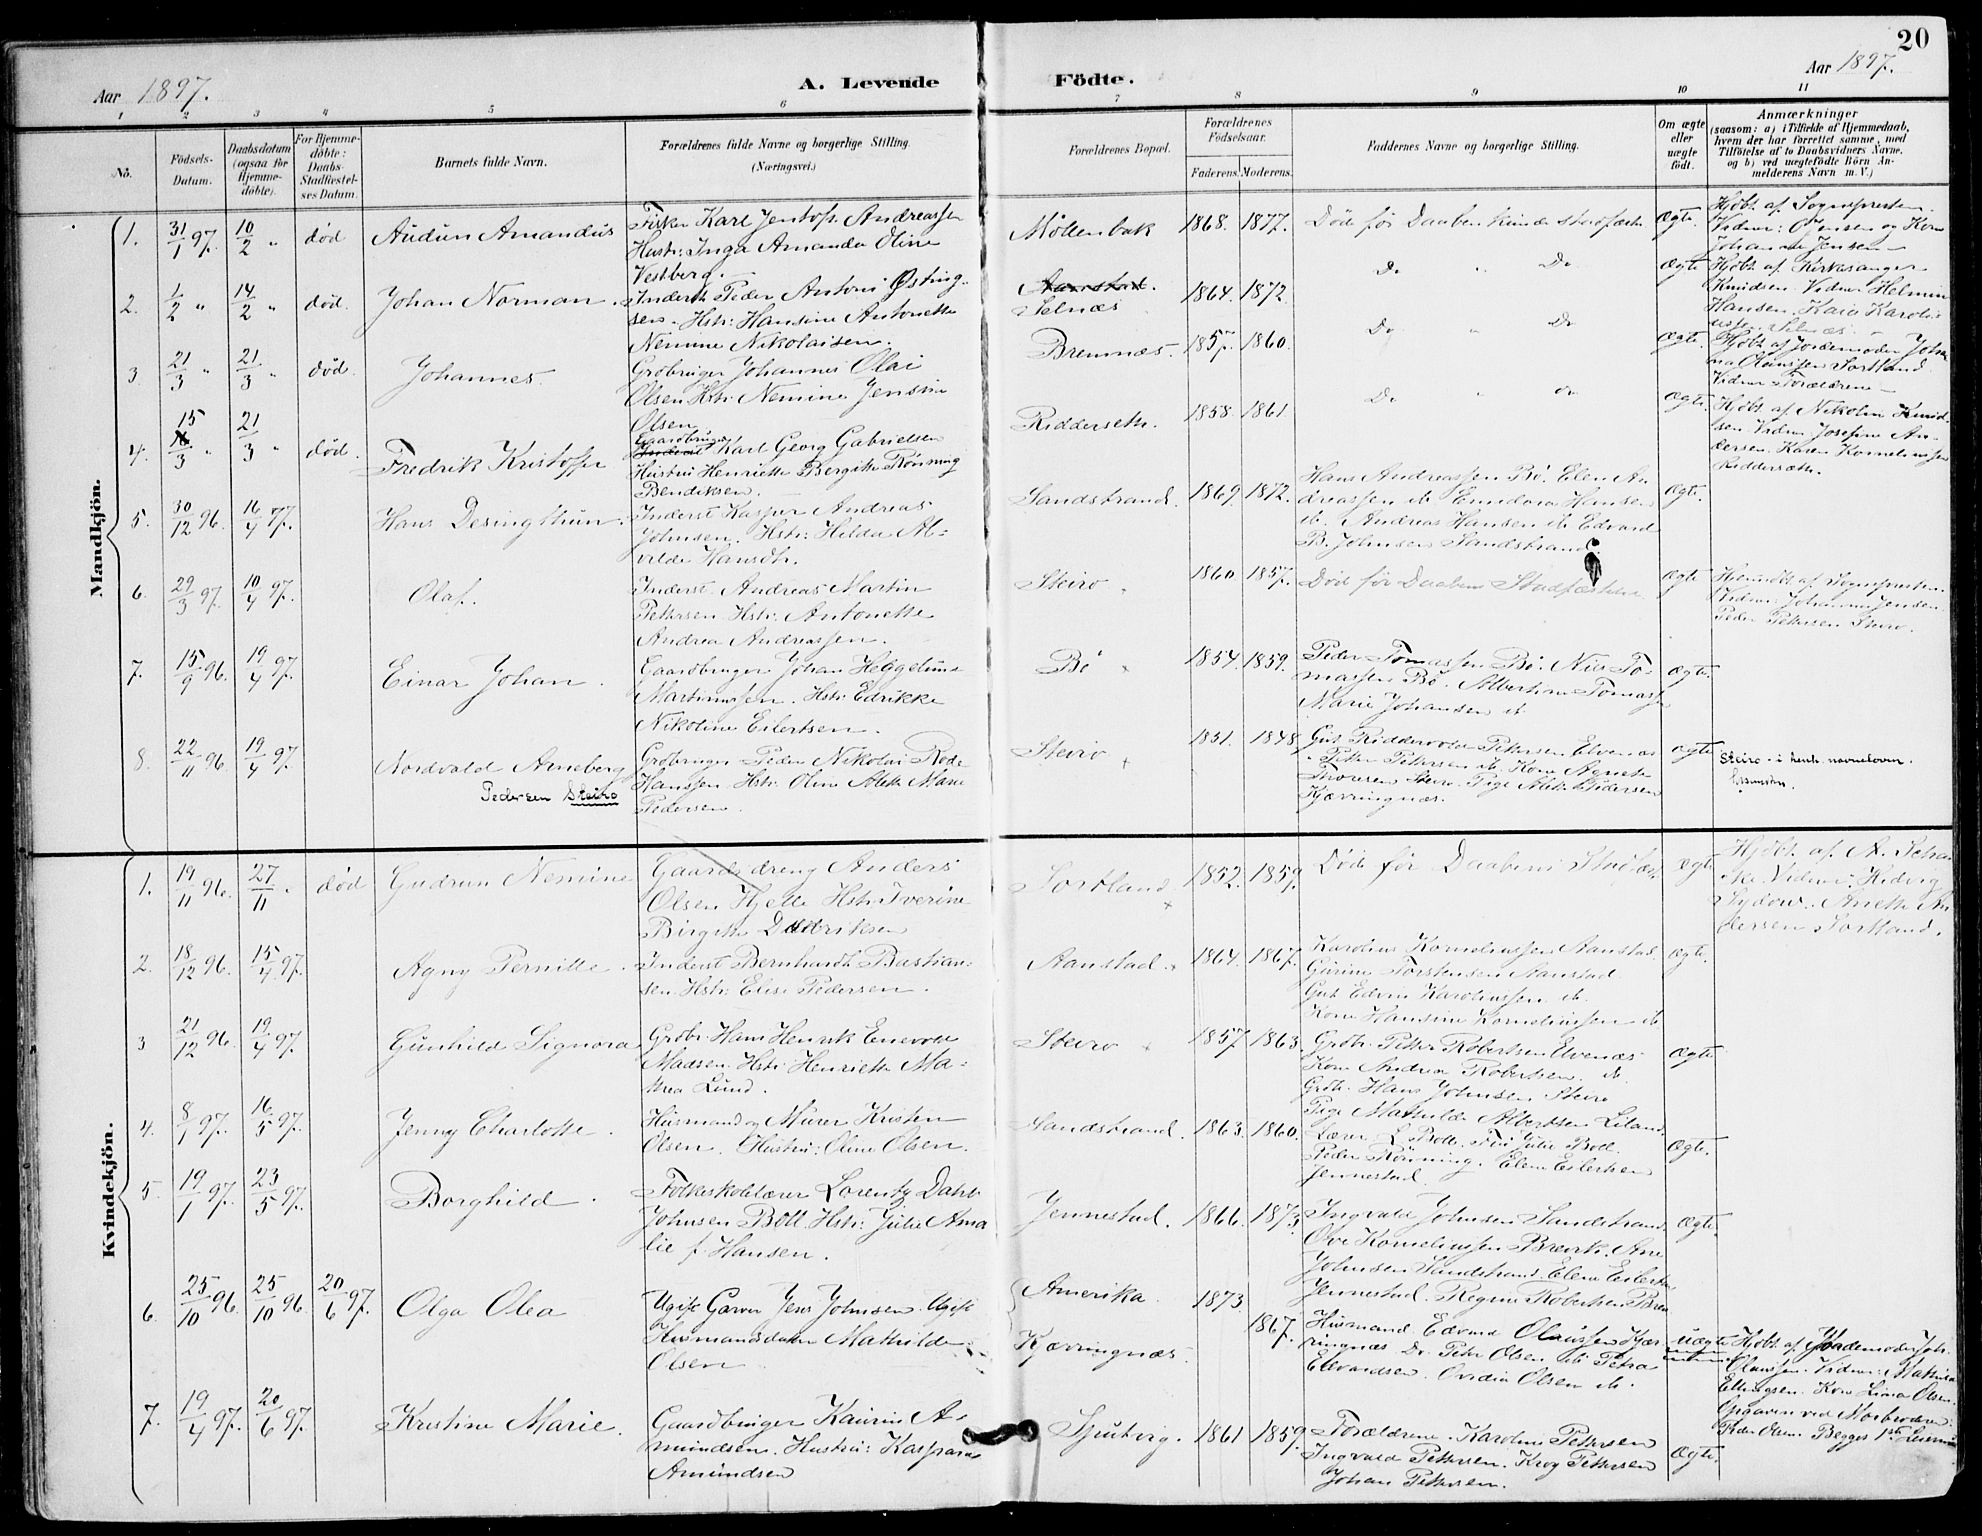 20
Aar 1897.
A. Levende Födte.
Aar 1897.
1 2 3 4 5 6 7 8 9 10 11
No.
Födsels-Datum.
Daabsdatum (ogsaa for Hjemmedöbte).
For Hjemmedöbte: Daabs-Stadfæstelses Datum.
Barnets fulde Navn.
Forældrenes fulde Navne og borgerlige Stilling.
(Næringsvei.)
Forældrenes Bopæl.
Forældrenes Födselsaar.
Faderens. Moderens.
Faddernes Navne og borgerlige Stilling.
Om ægte eller uægte födt.
Anmærkninger
(saasom: a) i Tilfælde af Hjemmedaab,
hvem der har forrettet samme, med
Tilföielse af to Daabsvidners Navne.
og b) ved uegtefödte Börn An-
melderens Navn m. V.)
Mandkjön.
1. 31/1 97. 10/2 " død Audun Amandus
Fisker Karl Jentoft Andreassen
Hustr: Inga Amanda Oline
Vestberg.
Möllenbak 1868. 1877. Døde før Daaben kunde stadfæstes Ægte.
Hjøbt af Sognepresten.
Vidner: O Jensen og Kone
Johanna Jensen
2. 1/2 " 14/2 " død. Johan Norman.
Inderst Peder Antoni Østing-
sen. Hstr: Hansine Antonette
Nemine Nikolaisen.
Aanstad.
Selnæs 1864. 1872. Do " Do Ægte
Hjøbt af Kirkesanger
Knudsen. Vidner Helmin
Hansen. Kaia Karoli
Selnæs.
3. 21/3 " 21/3 " død. Johannes.
Grdbruger Johannes Olai
Olsen Hstr: Nemine Jensine
Olsen
Bremnæs. 1857. 1860. Do " Do Ægte.
Hjøbt af Jordemoder Joha
na Olaussen Sortland
Vidner Forældrene
4. 15/3 " 21/3 " død. Fredrik Kristoffer
Gaardbruger
Inderst Karl Georg Gabrielsen
Hustru Henriette Bergitte Rönning
Bendiksen.
Ridderseth. 1858. 1861. Do " Do Ægte.
Hjøbt af Nikolai Knud
sen Vidner Josefine An-
dersen. Karen Korneliussen
Riddersæth.
5. 30/12 96. 16/4 97. Hans Desingthun.
Inderst Kasper Andreas
Johnsen. Hstr: Hilda Al-
vilde Hansdtr.
Sandstrand. 1869. 1872.
Hans Andreassen Bö. Elen An
dreassen ib Emidora Hansen
ib. Andreas Hansen ib Edvard
B. Johnsen Sandstrand.
Ægte.
6. 29/3 97. 10/4 97. Olaf.
Inderst. Andreas Martin
Pettersen. Hstr: Antonette
Andrea Andreassen.
Steiro 1860. 1857. Død før Daabens Stadfæstelse. Ægte
Hjemmdöbt af Sognepresten
Vidner: Johanna Jensen
Peder Pettersen Steiro.
7. 15/9 96. 19/4 97. Einar Johan.
Gaardbruger Johan Heggelun
Martinussen. Hstr: Edrikke
Nikoline Eilertsen.
Bö 1854. 1859.
Peder Tomassen Bö. Nils To-
massen Bö. Albertine Tomasse
Marie Johansen ib
Ægte.
8. 22/11 96. 19/4 97. Nordvald Arneberg
Pedersen Steiro
Grdbruger Peder Nikolai Rode
Hanssen. Hstr: Oline Aletta Marie
Pedersen.
Steiro 1851. 1848.
Gut Riddervold Pettersen Elvenæs
Peter Pettersen ib. Kone Agnete
Thoresen Steiro. Pige Aleta Pedersen
Kjærringnæs.
Ægte
Steiro - i henh. navneloven.
Kvindekjön.
1. 19/11 96. 27/11 " død Gudrun Nemine
Gaardsdreng Anders
Olsen Hjelle Hstr: Iverine
Birgitte Didriksen
Sortland 1852. 1859. Døde før Daabens Stadfæst. Ægte
Hjøbt. af A.
Vidner: Hedvig
Sydow. Anette An
dersen Sortland.
2. 18/12 96. 15/4 97. Agny Pernille.
Inderst Bernhardt Bastian-
sen. Hstr: Elise Pedersen.
Aanstad. 1864. 1867.
Karolius Kornelinssen Aanstad.
Gurine Torstensen Aanstad.
Gut Edvin Karolinssen ib.
Kone Hansine Kornelinssen ib
Ægte.
3 21/12 96. 19/4 97. Gunhild Signora
Grdbr Hans Henrik Enevold
Madsen. Hstr: Henriette Ma-
thea Lund.
Steiro 1857 1863
Grdbr. Petter Robertsen Elvenæs
Kone Andrea Robertsen ib.
Grdbr. Hans Johnsen Steiro
Pige Mathilde Albertsen Liland
Ægte.
4. 8/1 97. 16/5 97. Jenny Charlotte.
Husmand og Murer Kristen
Olsen. Hustru: Oline Olsen.
Sandstrand. 1863. 1860.
Lærer L Boll. Fru Julie Boll
Peder Rönning. Elene Eilertsen
Jennestad.
Ægte.
5. 19/1 97. 23/5 97. Borghild.
Folkeskolelærer Lorentz Dahl
Johnsen Boll. Hstr: Julie Ama
lie f. Hansen.
Jennestad. 1866. 1873.
Ingvald Johnsen Sandstrand
Ove Kornelinssen Brevik. Ane
Johnsen Sandstrand. Elene Eilertsen
Jennestad. Regine Robertsen Brev
Ægte.
6. 25/10 96. 25/10 96. 20/6 97. Olga Olea
Ugift Garver Jens Johnsen. Ugift
Husmandsdatter Mathilde
Olsen.
Amerika. 1873.
Kjærringnæs. 1867.
Husmand Edvard Olaussen Kjær
ringnæs Do. Peter Olsen ib. Petra
Edvardsen. Ovidia Olsen ib.
uægte
Hjøbt. af Jordemoder Joh.
Olaussen. Vidner: Mathilde
Ellingsen. Kone Lina Olsen
Opgaven ved Morbroderen
Peder Olsen. Begges 1ste Leiermaal
7. 19/4 97. 20/6 97. Kristine Marie.
Gaardbruger Kaurin A-
mundsen. Hustru: Kasparα
Amundsen
Spjutberg. 1861 1859.
Forældrene. Karolius Pettersen
Ingvald Pettersen. Krog Pettersen
Johan Pettersen.
Ægte.